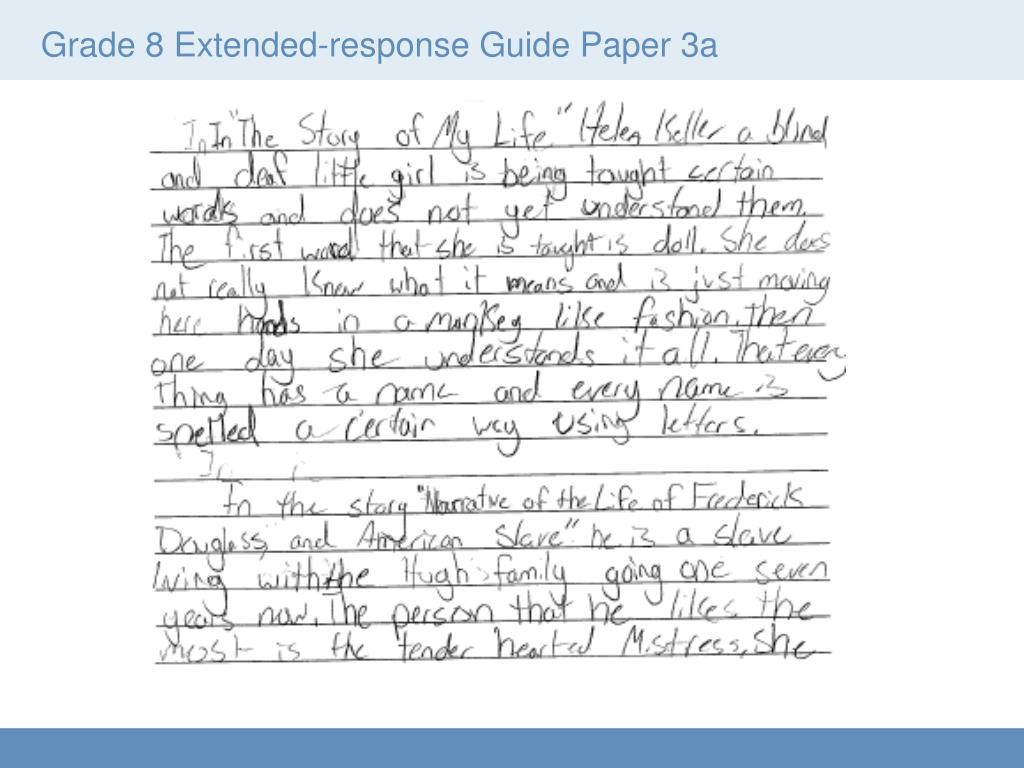 Grade 8 Extended-response Guide Paper 3a
In In "The Story of My Life" Helen Keller a blind
and deaf little girl is being tought certain
words and does not yet understand them.
The first word that she is tought is doll. She does
not really know what it means and is just moving
here hands in a monkey like fashion, then
one day she understands it all. That every
thing has a name and every name is
spelled a certain way using letters.
In
In the story "Narrative of the Life of Frederick
Douglass, and American Slave" he is a slave
living with the Hugh's family going one seven
years now. The person that he likes the
most is the tender hearted Mistress, She